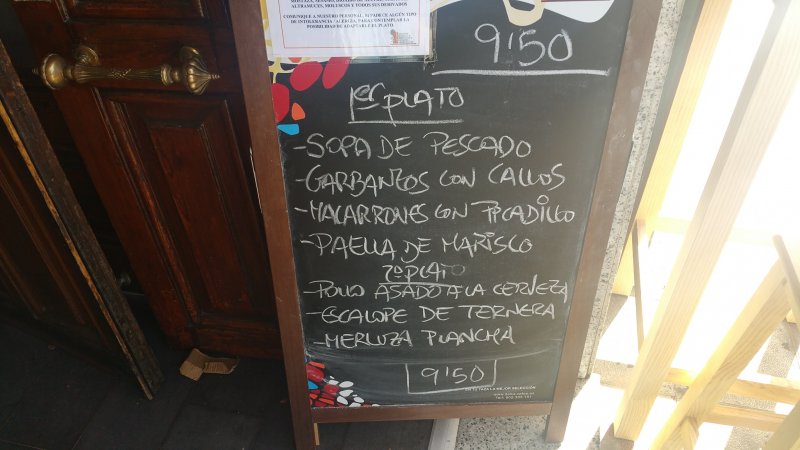 ALTRAMUCES, MOLUSCOS Y TODOS SUS DERIVADOS
COMUNIQUE A NUESTRO PERSONAL, SI PADECE ALGÚN TIPO
DE INTOLERANCIA /ALERGIA, PARA CONTEMPLAR LA
POSIBILIDAD DE ADAPTARLE EL PLATO.
9'50
1er PLATO
-SOPA DE PESCADO
-GARBANZOS CON CALLOS
-MACARRONES CON PICADILLO
-PAELLA DE MARISCO
2º PLATO
-POLLO ASADO A LA CERVEZA
-ESCALOPE DE TERNERA
-MERLUZA PLANCHA
9'50
EN TU TAZA LA MEJOR SELECCIÓN